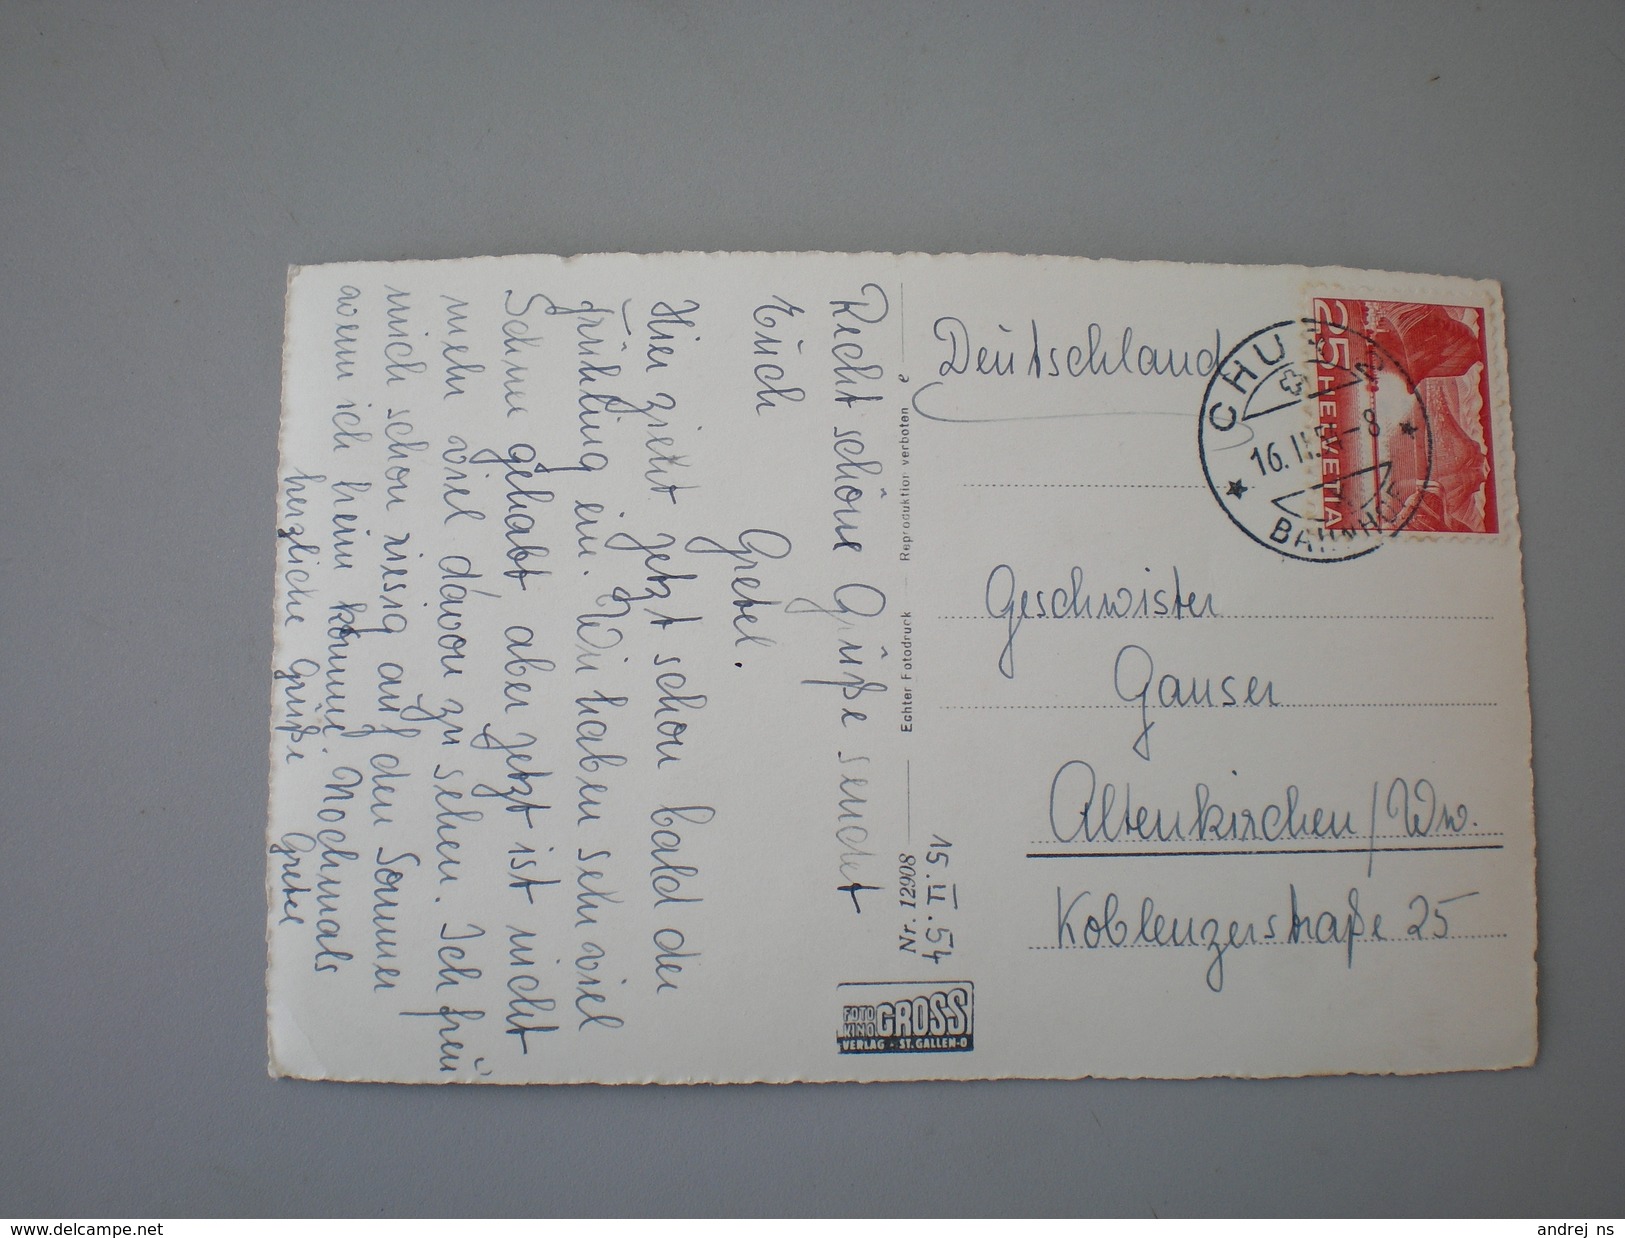 15. II. 54
Recht schöne Grüße sendet
Euch
Gretel.
Hier zieht jetzt schon bald der
Frühling ein. Wir haben sehr viel
Schnee gehabt, aber jetzt ist nicht
mehr viel davon zu sehen. Ich freu
mich schon riesig auf den Sommer
wenn ich heim komme. Nochmals
herzliche Grüße Gretel
Nr. 12908
Echter Fotodruck — Reproduktion verboten
e
FOTO
KINO
GROSS
VERLAG • ST. GALLEN-O
Deutschland
25 HELVETIA
CHUR 2
16. II. 54 – 8
BAHNHOF
Geschwister
Gauser
Altenkirchen/Ww.
Koblenzerstraße 25
www.delcampe.net
andrej_ns